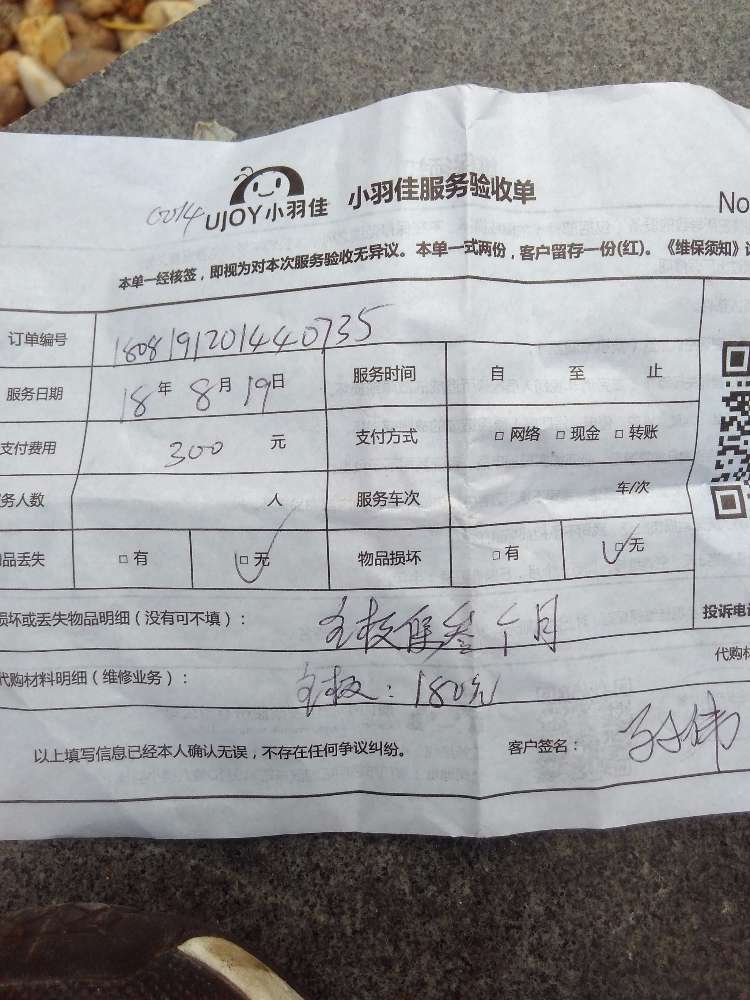 0014 UJOY小羽佳 小羽佳服务验收单 No
本单一经核签，即视为对本次服务验收无异议。本单一式两份，客户留存一份(红)。《维保须知》
订单编号 1808191201440735
服务日期 18年8月19日 服务时间 自 至 止
支付费用 300 元 支付方式 □网络 □现金 □转账
务人数 人 服务车次 车/次
品丢失 □有 □无 物品损坏 □有 □无
损坏或丢失物品明细（没有可不填）： 主板保叁个月 投诉电
代购材料明细（维修业务）： 主板：180元 代购材
以上填写信息已经本人确认无误，不存在任何争议纠纷。 客户签名：